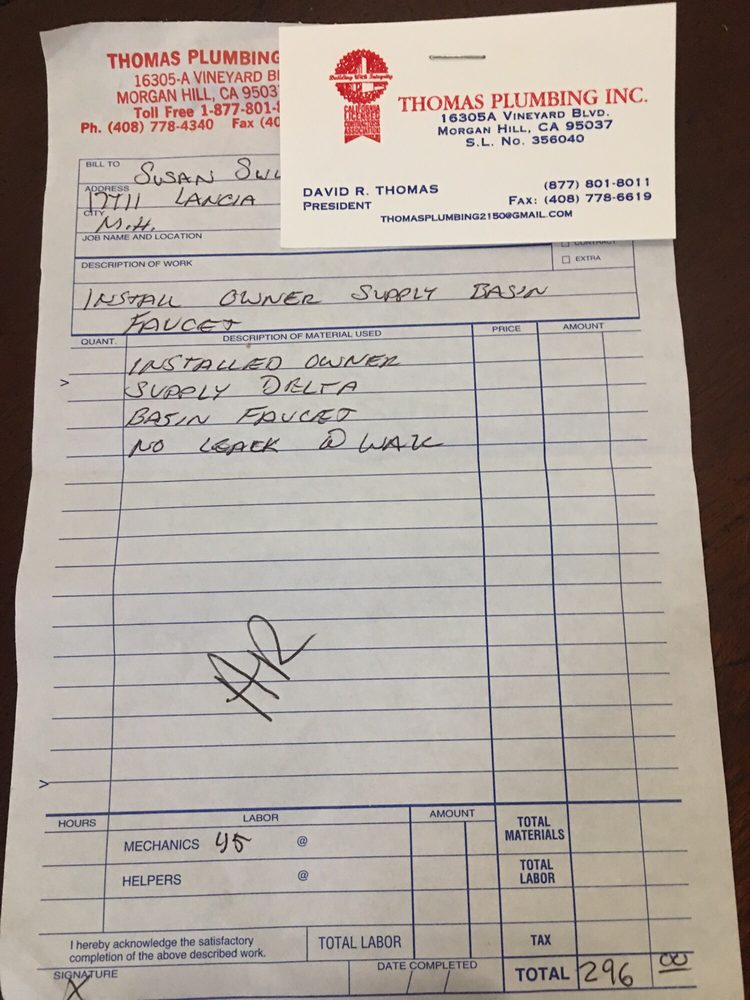 THOMAS PLUMBING
16305-A VINEYARD Bl
MORGAN HILL, CA 9503
Toll Free 1-877-801-
Ph. (408) 778-4340 Fax (40
Building With Integrity
CALIFORNIA
LICENSED
CONTRACTORS
ASSOCIATION
THOMAS PLUMBING INC.
16305A VINEYARD BLVD.
MORGAN HILL, CA 95037
S.L. NO. 356040
DAVID R. THOMAS
PRESIDENT
(877) 801-8011
FAX: (408) 778-6619
THOMASPLUMBING2150@GMAIL.COM
BILL TO SUSAN
ADDRESS 17711 LANCIA
CITY M.H.
JOB NAME AND LOCATION
CONTRACT
EXTRA
DESCRIPTION OF WORK
INSTALL OWNER SUPPLY BASIN
FAUCET
QUANT. DESCRIPTION OF MATERIAL USED PRICE AMOUNT
INSTALLED OWNER
> SUPPLY DELTA
BASIN FAUCET
NO LEAK @
AR
>
HOURS LABOR AMOUNT TOTAL MATERIALS
MECHANICS 45 @
HELPERS @ TOTAL LABOR
I hereby acknowledge the satisfactory
completion of the above described work.
TOTAL LABOR TAX
SIGNATURE X DATE COMPLETED / / TOTAL 296 00